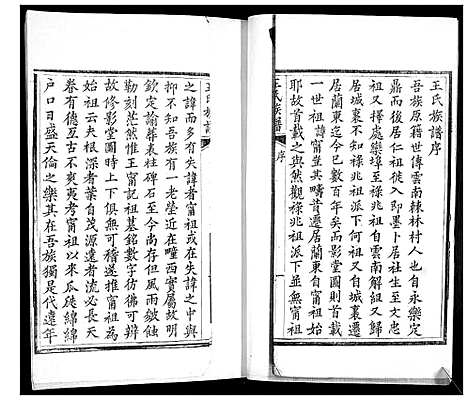 王氏族譜序
吾族原籍世傳雲南棘林村人也自永樂定
鼎而後居仁祖徙入即墨卜居社生至文忠
祖又擇處欒埠至祿兆祖自雲南解組又歸
居城裏不知祿兆祖派下何祖又自城裏遷
居蘭東迄今已數百年矣而影堂圖則首載
一世祖諱甯並其疇昔遷居蘭東自甯祖始
耶故首載之與然觀祿兆祖派下並無甯祖
王氏族譜
序
一
王氏族譜
之諱而多有失諱者甯祖或在失諱之中與
抑不知吾族有一老塋近在疃西實屬故明
欽定諭葬表柱碑石至今尚存但風雨敓蝕
勒刻茫然惟王甯記祖墓銘數字彷彿可辨
故修影堂圖時上下俱無可稽遂推甯祖為
始祖云夫根深者葉自茂源遠者流必長天
眷有德亙古不爽夷考甯祖以來瓜瓞綿綿
戶口日盛天倫之樂其在吾族獨是代遠年